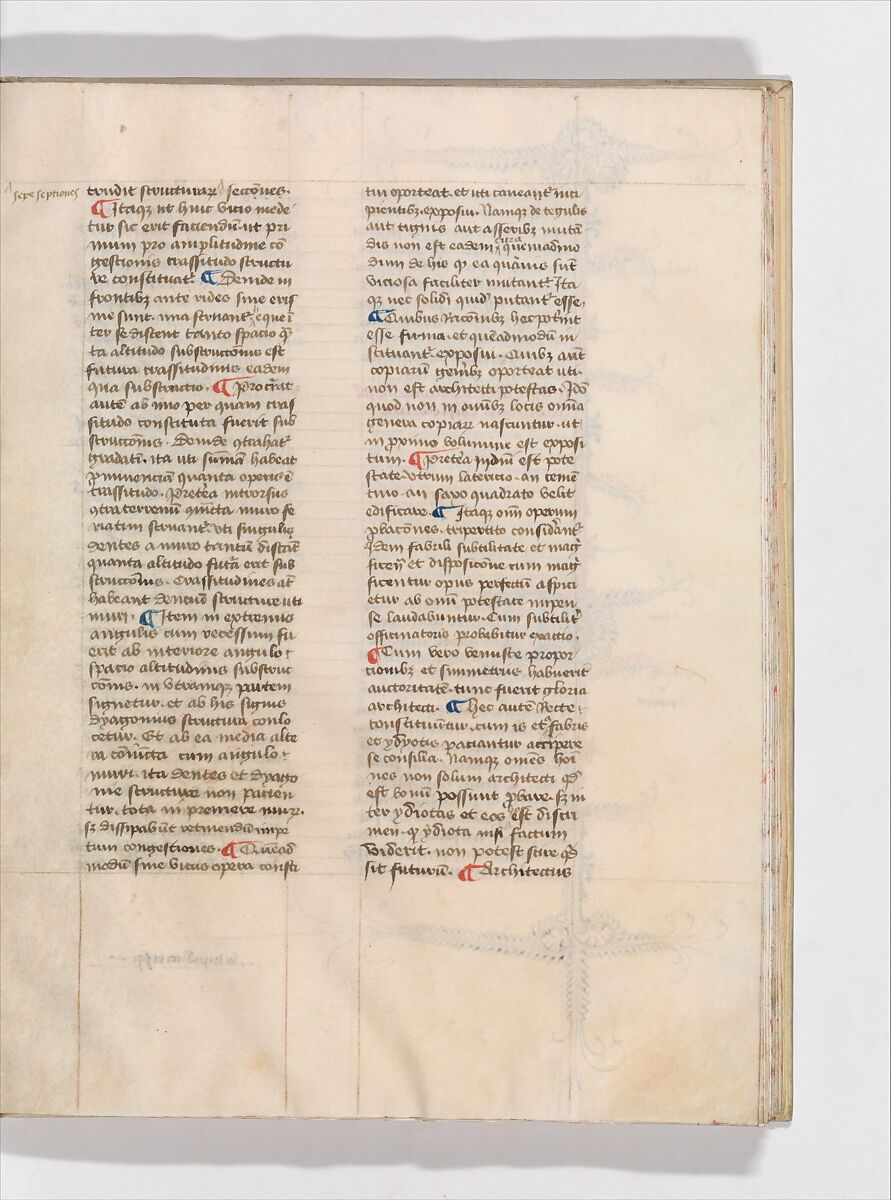 sepe septiones
trudit structurarum sectões.
¶ Itaqz ut huic vicio mede
tur sic erit faciendũ ut pri
mum pro amplitudine cõ
gestionis crassitudo structu
re constituatr̃ ¶ Deinde in
frontibz anterides siue eris
me sunt. una struant̃ eqz i
ter se distent tanto spacio q̃
ta altitudo substructõnis est
futura crassitudinis eadem
qua substructio. ¶ Procr̃at
autẽ ab imo per quam cras
situdo constituta fuerit sub
structõnis. Deinde ꝯtrahat̃
gradatĩ. ita uti sũmã habeat
ꝓminentiã quanta operis ẽ
crassitudo. Preterea introrsus
ꝯtra terrenũ ꝯiũcta muro se
riatim struant̃ uti singulis
dentes a muro tantũ distẽt
quanta altitudo futã erit sub
structõnis. Crassitudines at̃
habeant dentiũ structure uti
muri. ¶ Item in extremis
angulis cum recessum fu
erit ab interiore angulo
spacio altitudinis substruc
cõnis. in utramqz partem
signetur. et ab his signis
dyagonius structura conlo
cetur. Et ab ea media alte
ra cõiũcta cum angulo
muri. ita dentes et dyago
nie structure non pacien
tur. tota ui premere murũ.
sz dissipabũt retinendũ impe
tum congestiones. ¶ Quẽad
modũ sine vicus opera consti
tui oporteat. et uti caueant̃ inci
pientibz. exposui. Namqz de tegulis
aut tignis aut asseribz mutã
dis non est eadem cura quemadmo
dum de his qz ea quãuis sũt
viciosa faciliter mutant̃ Ita
qz nec solidi quid̃ putant̃ esse,
¶ Quibus racionibz hec poterit
esse firma. et queadmodũ in
stituant̃. exposui. Quibz aut̃
copiarũ genibz oporteat uti.
non est architecti potestas. Ido
quod non in omibz locis omĩa
genera copiarũ nascuntur. ut
in proximo volumine est exposi
tum. ¶ Preterea in dnĩ est pote
state. Vtrum latericio. an cemẽ
ticio. an saxo quadrato velit
edificare. ¶ Itaqz omĩ operum
ꝓbacões. tripertito considerant̃
idem fabrili subtilitate et mag̃
ficen̄ et disposicõne cum mag̃
ficentur opus perfectũ aspici
etur ab omĩ potestate impen
se laudabuntur. Cum subtilit̃
officinatoris probabitur exactio.
¶ Cum vero venuste propor
cionibz et simmetriis habuerit
auctoritatẽ. tunc fuerit gloria
architecti. ¶ Hec autẽ Recte
constituũtur. cum is et a fabris
et ydyotis paciantur accipere
se consilia. Namqz omẽs homi
nes non solum architecti q̃
est bonũ possunt ꝓbare. sz in
ter ydiotas et eos est discri
men. qz ydiota nisi factum
viderit. non potest scire q̃
sit futurũ. ¶ Architectus